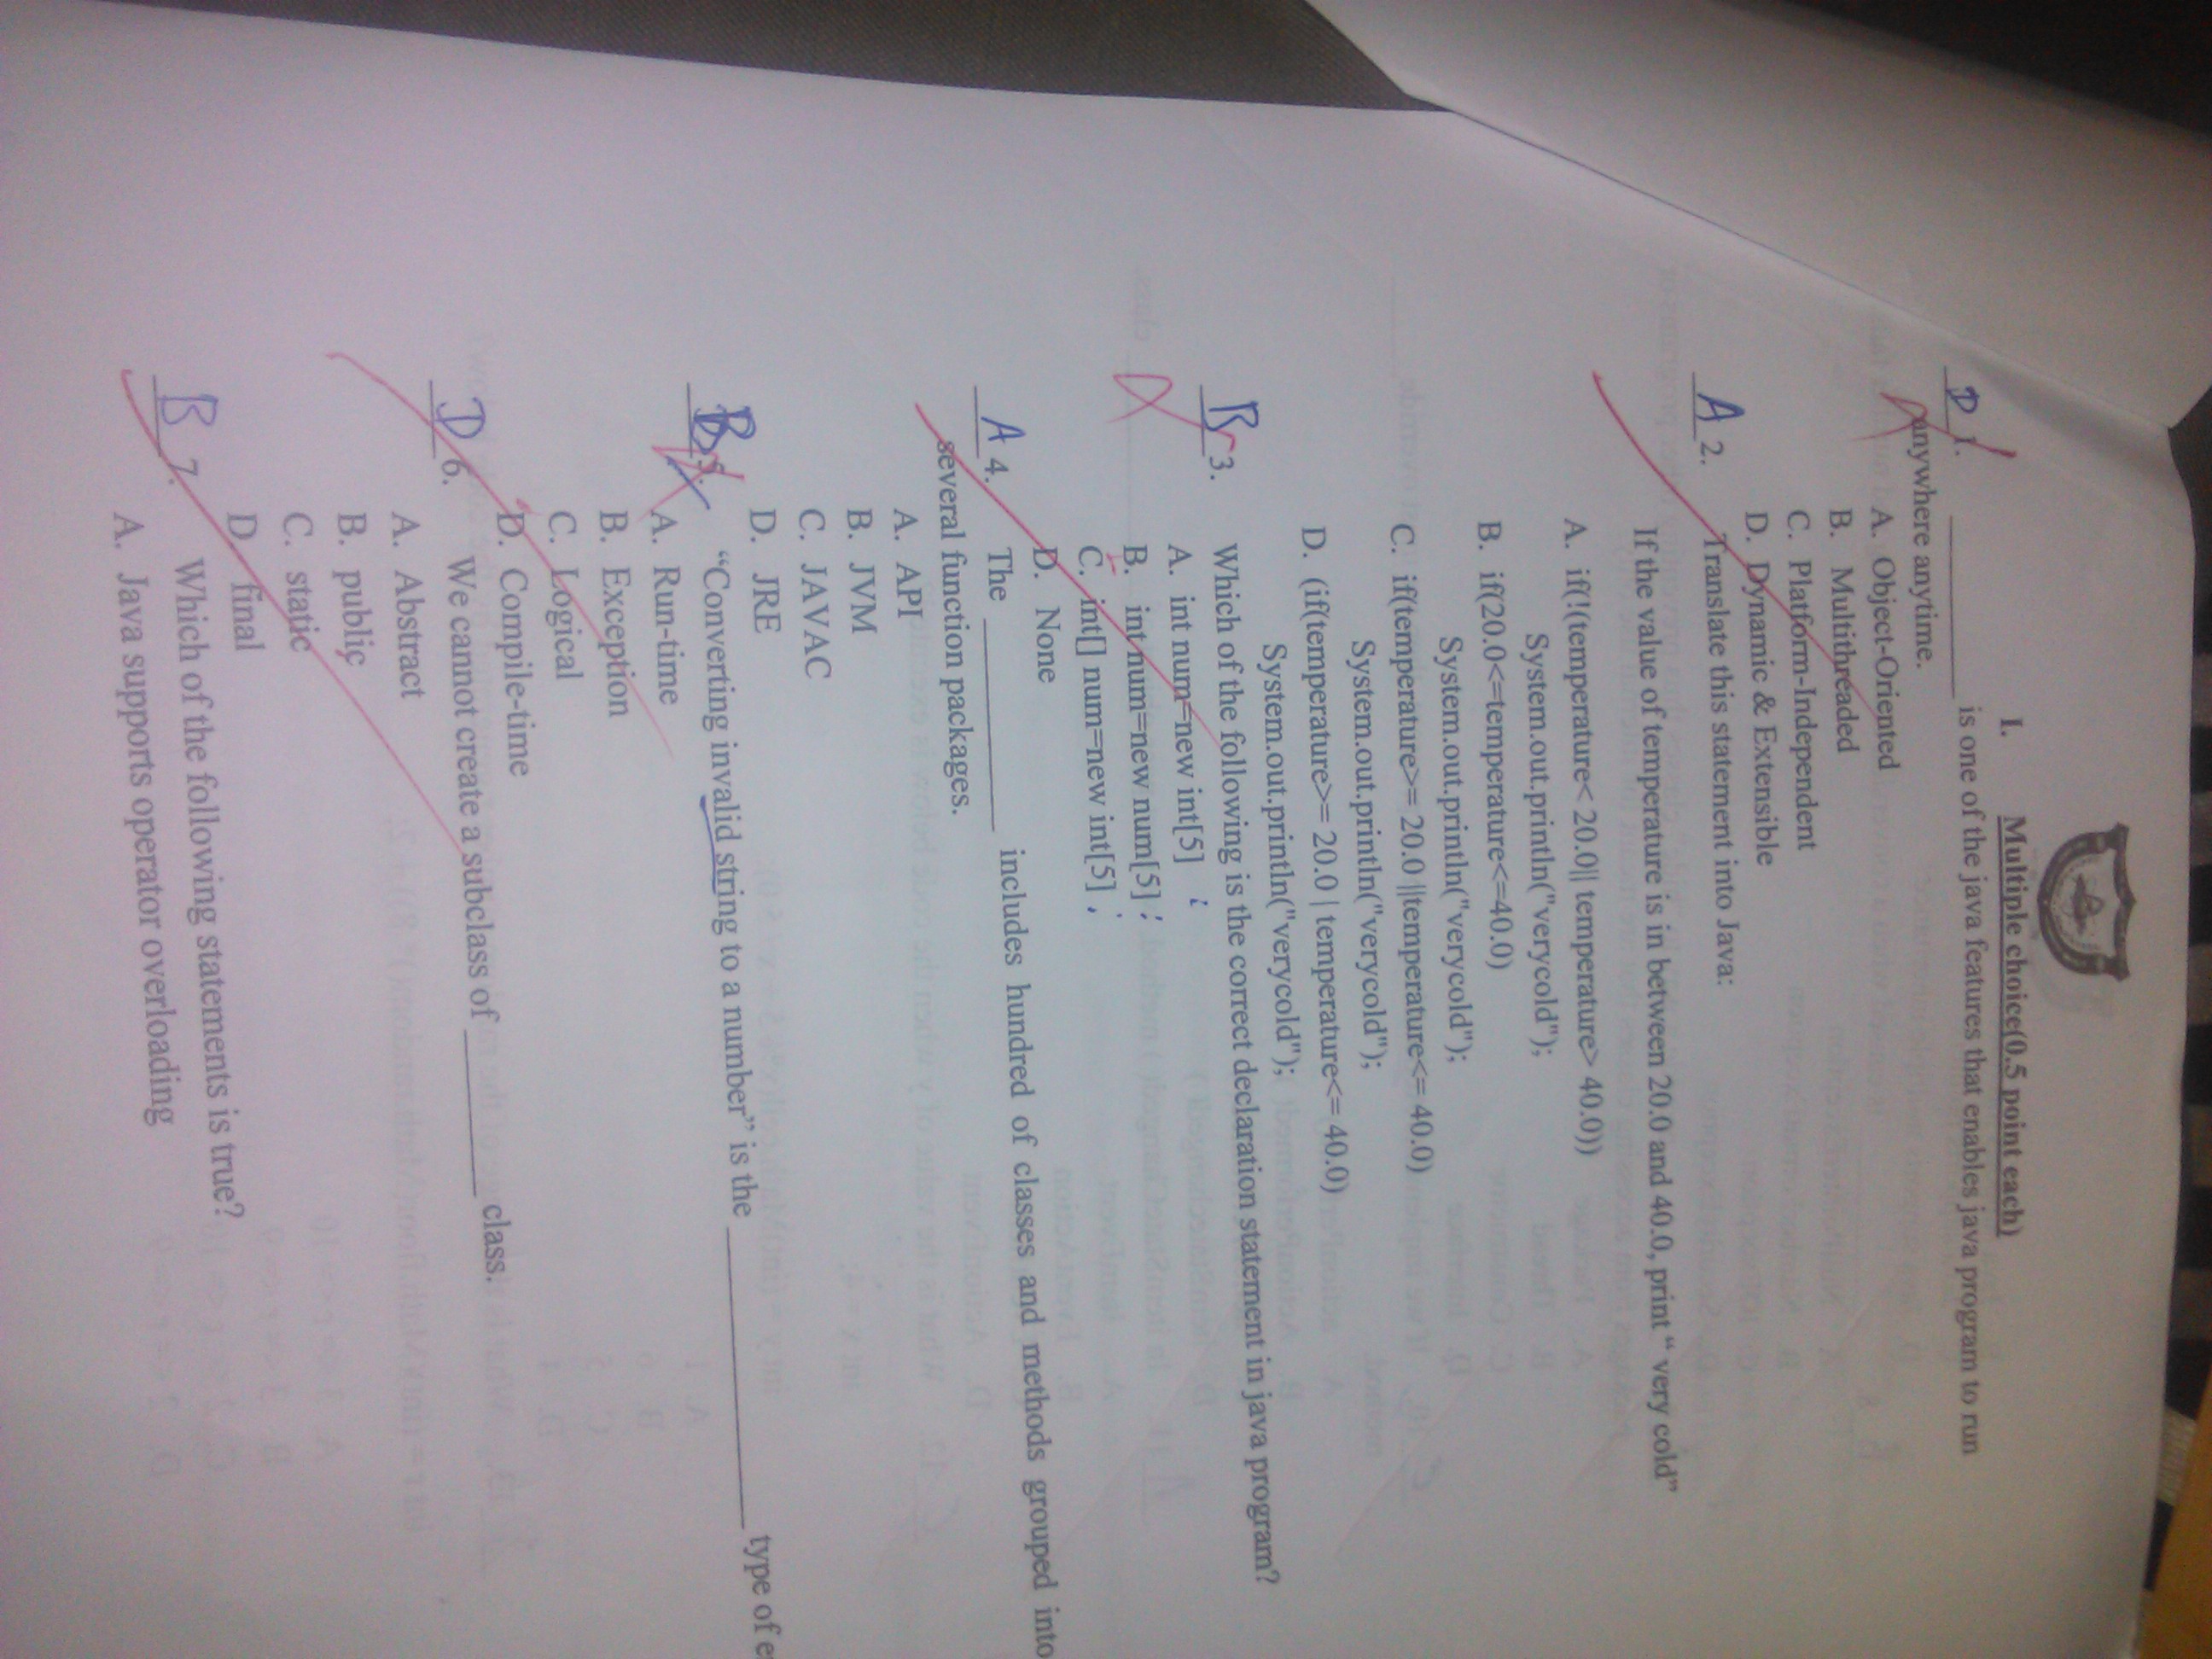 I. Multiple choice(0.5 point each)
D 1. __________ is one of the java features that enables java program to run
anywhere anytime.
A. Object-Oriented
B. Multithreaded
C. Platform-Independent
D. Dynamic & Extensible
A 2. Translate this statement into Java:
If the value of temperature is in between 20.0 and 40.0, print “ very cold”
A. if(!(temperature< 20.0|| temperature> 40.0))
System.out.println("verycold");
B. if(20.0<=temperature<=40.0)
System.out.println("verycold");
C. if(temperature>= 20.0 ||temperature<= 40.0)
System.out.println("verycold");
D. (if(temperature>= 20.0 | temperature<= 40.0)
System.out.println("verycold");
B 3. Which of the following is the correct declaration statement in java program?
A. int num=new int[5] ;
B. int num=new num[5] ;
C. int[] num=new int[5] ;
D. None
A 4. The __________ includes hundred of classes and methods grouped into
several function packages.
A. API
B. JVM
C. JAVAC
D. JRE
B 5. “Converting invalid string to a number” is the __________ type of
A. Run-time
B. Exception
C. Logical
D. Compile-time
D 6. We cannot create a subclass of __________ class.
A. Abstract
B. public
C. static
D. final
B 7. Which of the following statements is true?
A. Java supports operator overloading